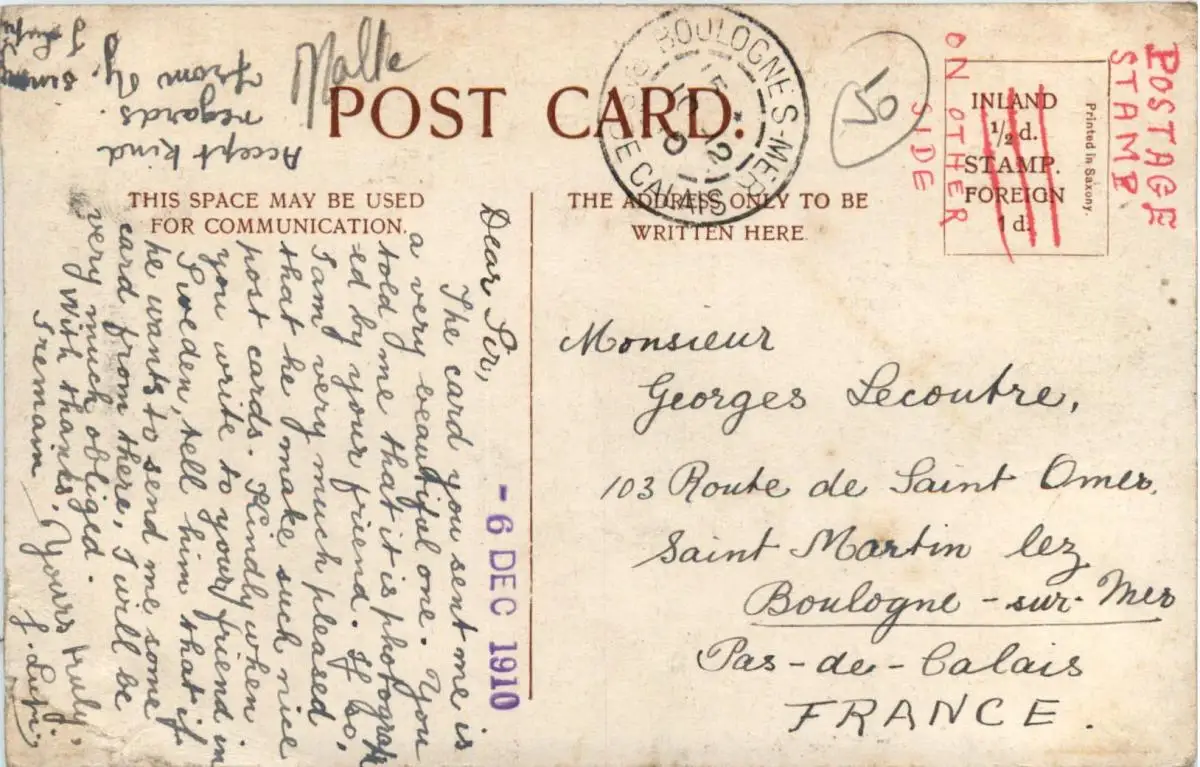 Malte
POST CARD.
BOULOGNE-S-MER
PAS DE CALAIS
15 *
12
10
50
POSTAGE
STAMP
ON OTHER
SIDE
INLAND
½ d.
STAMP.
FOREIGN
1 d.
Printed in Saxony.
THIS SPACE MAY BE USED
FOR COMMUNICATION.
THE ADDRESS ONLY TO BE
WRITTEN HERE.
- 6 DEC 1910
Dear Sir,
The card you sent me is
a very beautiful one. You
told me that it is photograph
ed by your friend. If so,
I am very much pleased
that he make such nice
post cards. Kindly when
you write to your friend in
Sweden, tell him that if
he wants to send me some
card from there, I will be
very much obliged.
With thanks.
I remain
Yours truly,
Accept kind
regards.
from
Monsieur
Georges Lecoutre,
103 Route de Saint Omer.
Saint Martin lez
Boulogne-sur-Mer
Pas-de-Calais
FRANCE.